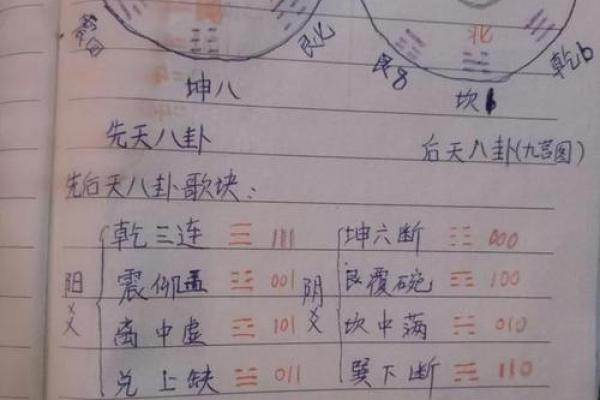 震四
艮七
北
艮8
乾6
坤八
坎1
先天八卦
后天八卦(九宫图)
先后天八卦歌块:
阳爻
乾三连 ☰ 111
震仰盂 ☳ 001
离中虚 ☲ 101
兑上缺 ☱ 011
阴爻
坤六断 ☷ 000
艮覆碗 ☶ 100
坎中满 ☵ 010
巽下断 ☴ 110